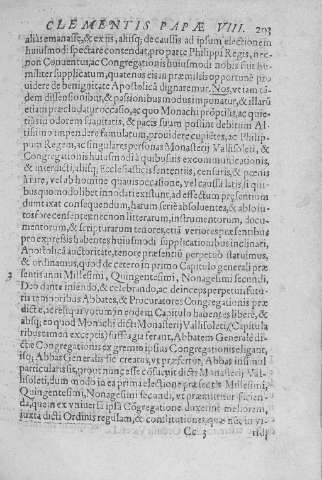 CLEMENTIS PAPÆ VIII. 203
alias emanasse, & ex iis, aliisq; de causis ad ipsum electionem
huiusmodi spectare contendat, pro parte Philippi Regis, nec-
non Conuentus, ac Congregationis huiusmodi nobis fuit hu-
militer supplicatum, quatenus eis in præmissis opportunè pro
uidere de benignitate Apostolicâ dignaremur. Nos, vt iam tã-
dem dissensionibus, & passionibus modus imponatur, & illarũ
etiam præcludatur occasio, ac quo Monachi præpositi, ac quie-
tis studio odorem suauitatis, & pacis suam possint debitum Al-
tissimo impendere famulatum, prouidere cupiẽtes, ac Philip-
pum Regem, ac singulares personas Monasterij Vallisoleti, &
Congregationis huiusmodi à quibusuis excommunicationis,
& interdicti, aliisq; Ecclesiasticis sententiis, censuris, & pœnis
à iure, vel ab homine quauis occasione, vel causa latis, si qui-
bus quomodolibet innodati existunt, ad effectum præsentium
dumtaxat consequendum, harum serie absoluentes, & absolu-
tos fore censentes necnon litterarum, instrumentorum, docu-
mentorum, & scripturarum tenores, etiã veriores præsentibus
pro expressis habentes huiusmodi supplicationibus inclinati,
Apostolicâ auctoritate, tenore præsentiũ perpetuò statuimus,
& ordinamus, quòd de cetero in primo Capitulo generali præ
3 sentis anni Millesimi, Quingentesimi, Nonagesimi secundi,
Deo dante ineundo, & celebrando, ac deinceps perpetuis futu-
ris temporibus Abbates, & Procuratores Congregationis præ
dictæ, ac reliqui votum in eodem Capitulo habentes liberè, &
absq; eo quod Monachi dicti Monasterij Vallisoleti (Capitula
ribus tamen exceptis) suffragia ferant, Abbatem Generalẽ di-
ctæ Congregationis ex gremio ipsius Congregationis eligant,
isq; Abbas Generalis sic creatus, vt præfertur, Abbas insimul
particularis sit, prout nunc esse cõsueuit dicti Monasterij Val-
lisoleti, dum modo in ea prima electione præsentis Millesimi,
Quingentesimi, Nonagesimi secundi, vt præmittitur facien-
da, quem ex vniuersa ipsa Cõgregatione duxerint meliorem,
iuxta dicti Ordinis regulam, & constitutiones, quæ non in vi-
Cc 3